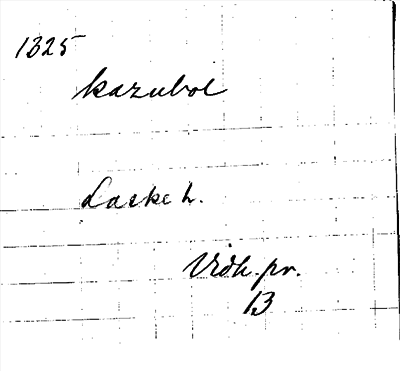 1325
kazubol
Laske h.
Vidh. pr.
13